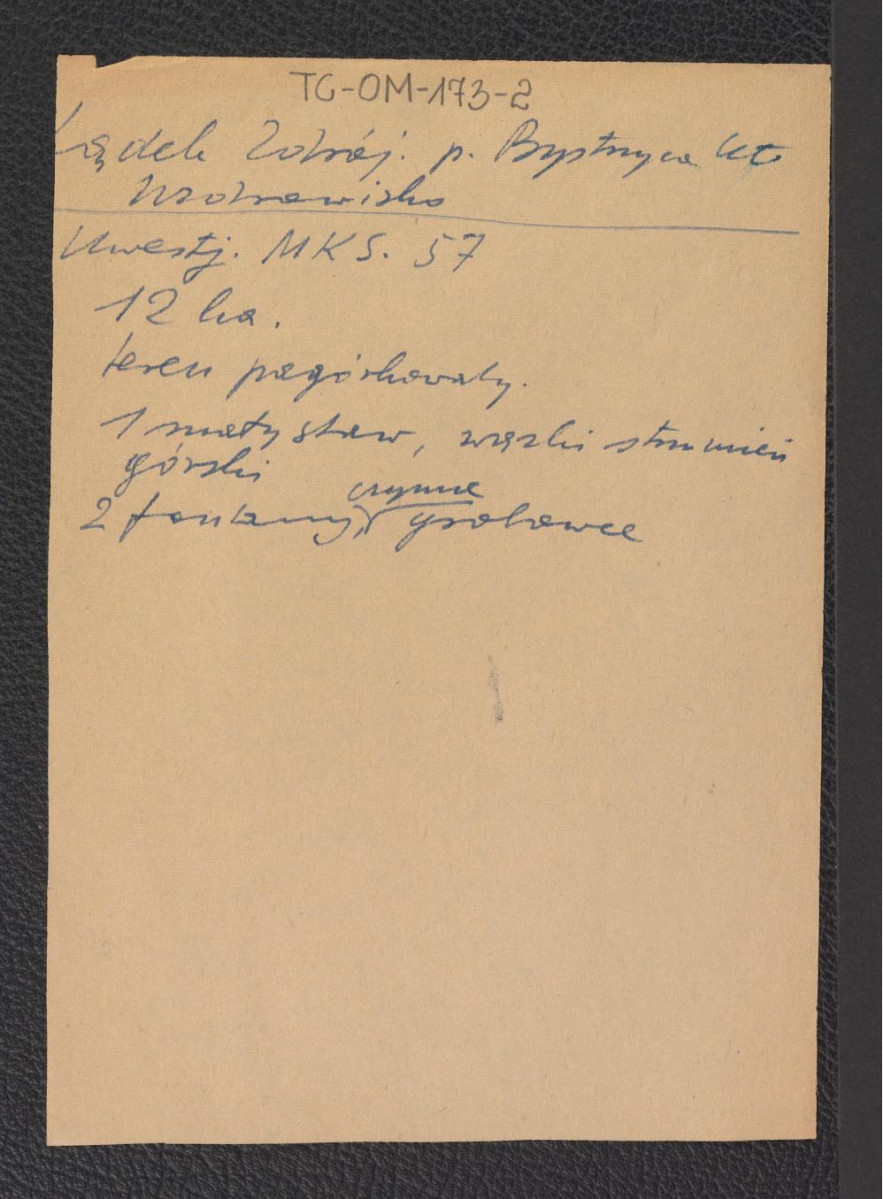 TG-OM-173-2
Lądek Zdrój. p. Bystrzyca Kł
Uzdrowisko
MKS. 57
12 ha.
teren pagórkowaty.
1 mały staw, wąski strumień
górski
czynne
2 fontanny, grobowce